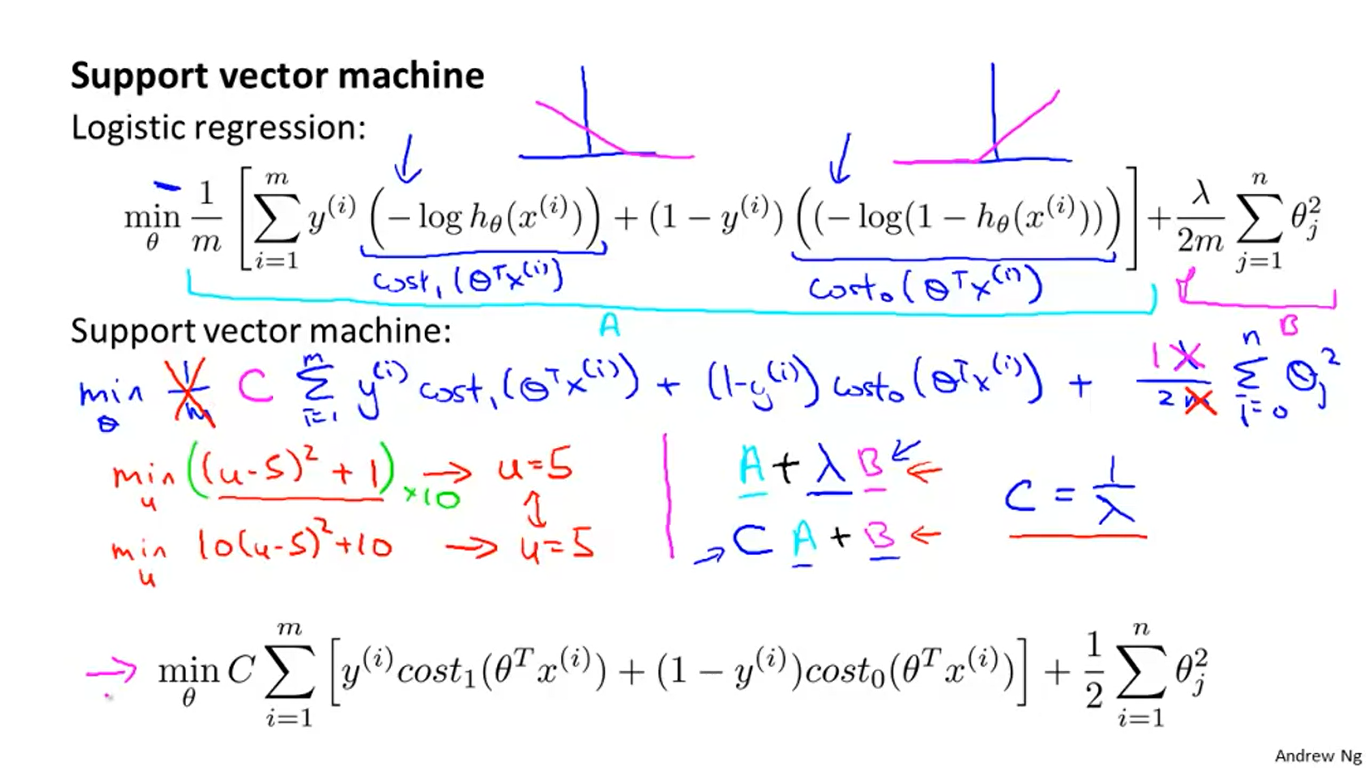 Support vector machine
Logistic regression:
min_θ 1/m [ ∑_{i=1}^{m} y^{(i)} (− log h_θ(x^{(i)})) + (1 − y^{(i)}) ((− log(1 − h_θ(x^{(i)}))) ] + λ/2m ∑_{j=1}^{n} θ_j^2
cost_1 (θ^T x^{(i)}) cost_0 (θ^T x^{(i)})
A B
Support vector machine:
min_θ 1/m C ∑_{i=1}^{m} y^{(i)} cost_1 (θ^T x^{(i)}) + (1-y^{(i)}) cost_0 (θ^T x^{(i)}) + 1 λ/2 m ∑_{i=0}^{n} θ_j^2
min_u ((u-5)^2 + 1) ×10 → u=5
A + λ B ←
C = 1/λ
min_u 10(u-5)^2 + 10 → u=5
→ C A + B ←
→ min_θ C ∑_{i=1}^{m} [ y^{(i)} cost_1(θ^T x^{(i)}) + (1 − y^{(i)}) cost_0(θ^T x^{(i)}) ] + 1/2 ∑_{i=1}^{n} θ_j^2
Andrew Ng